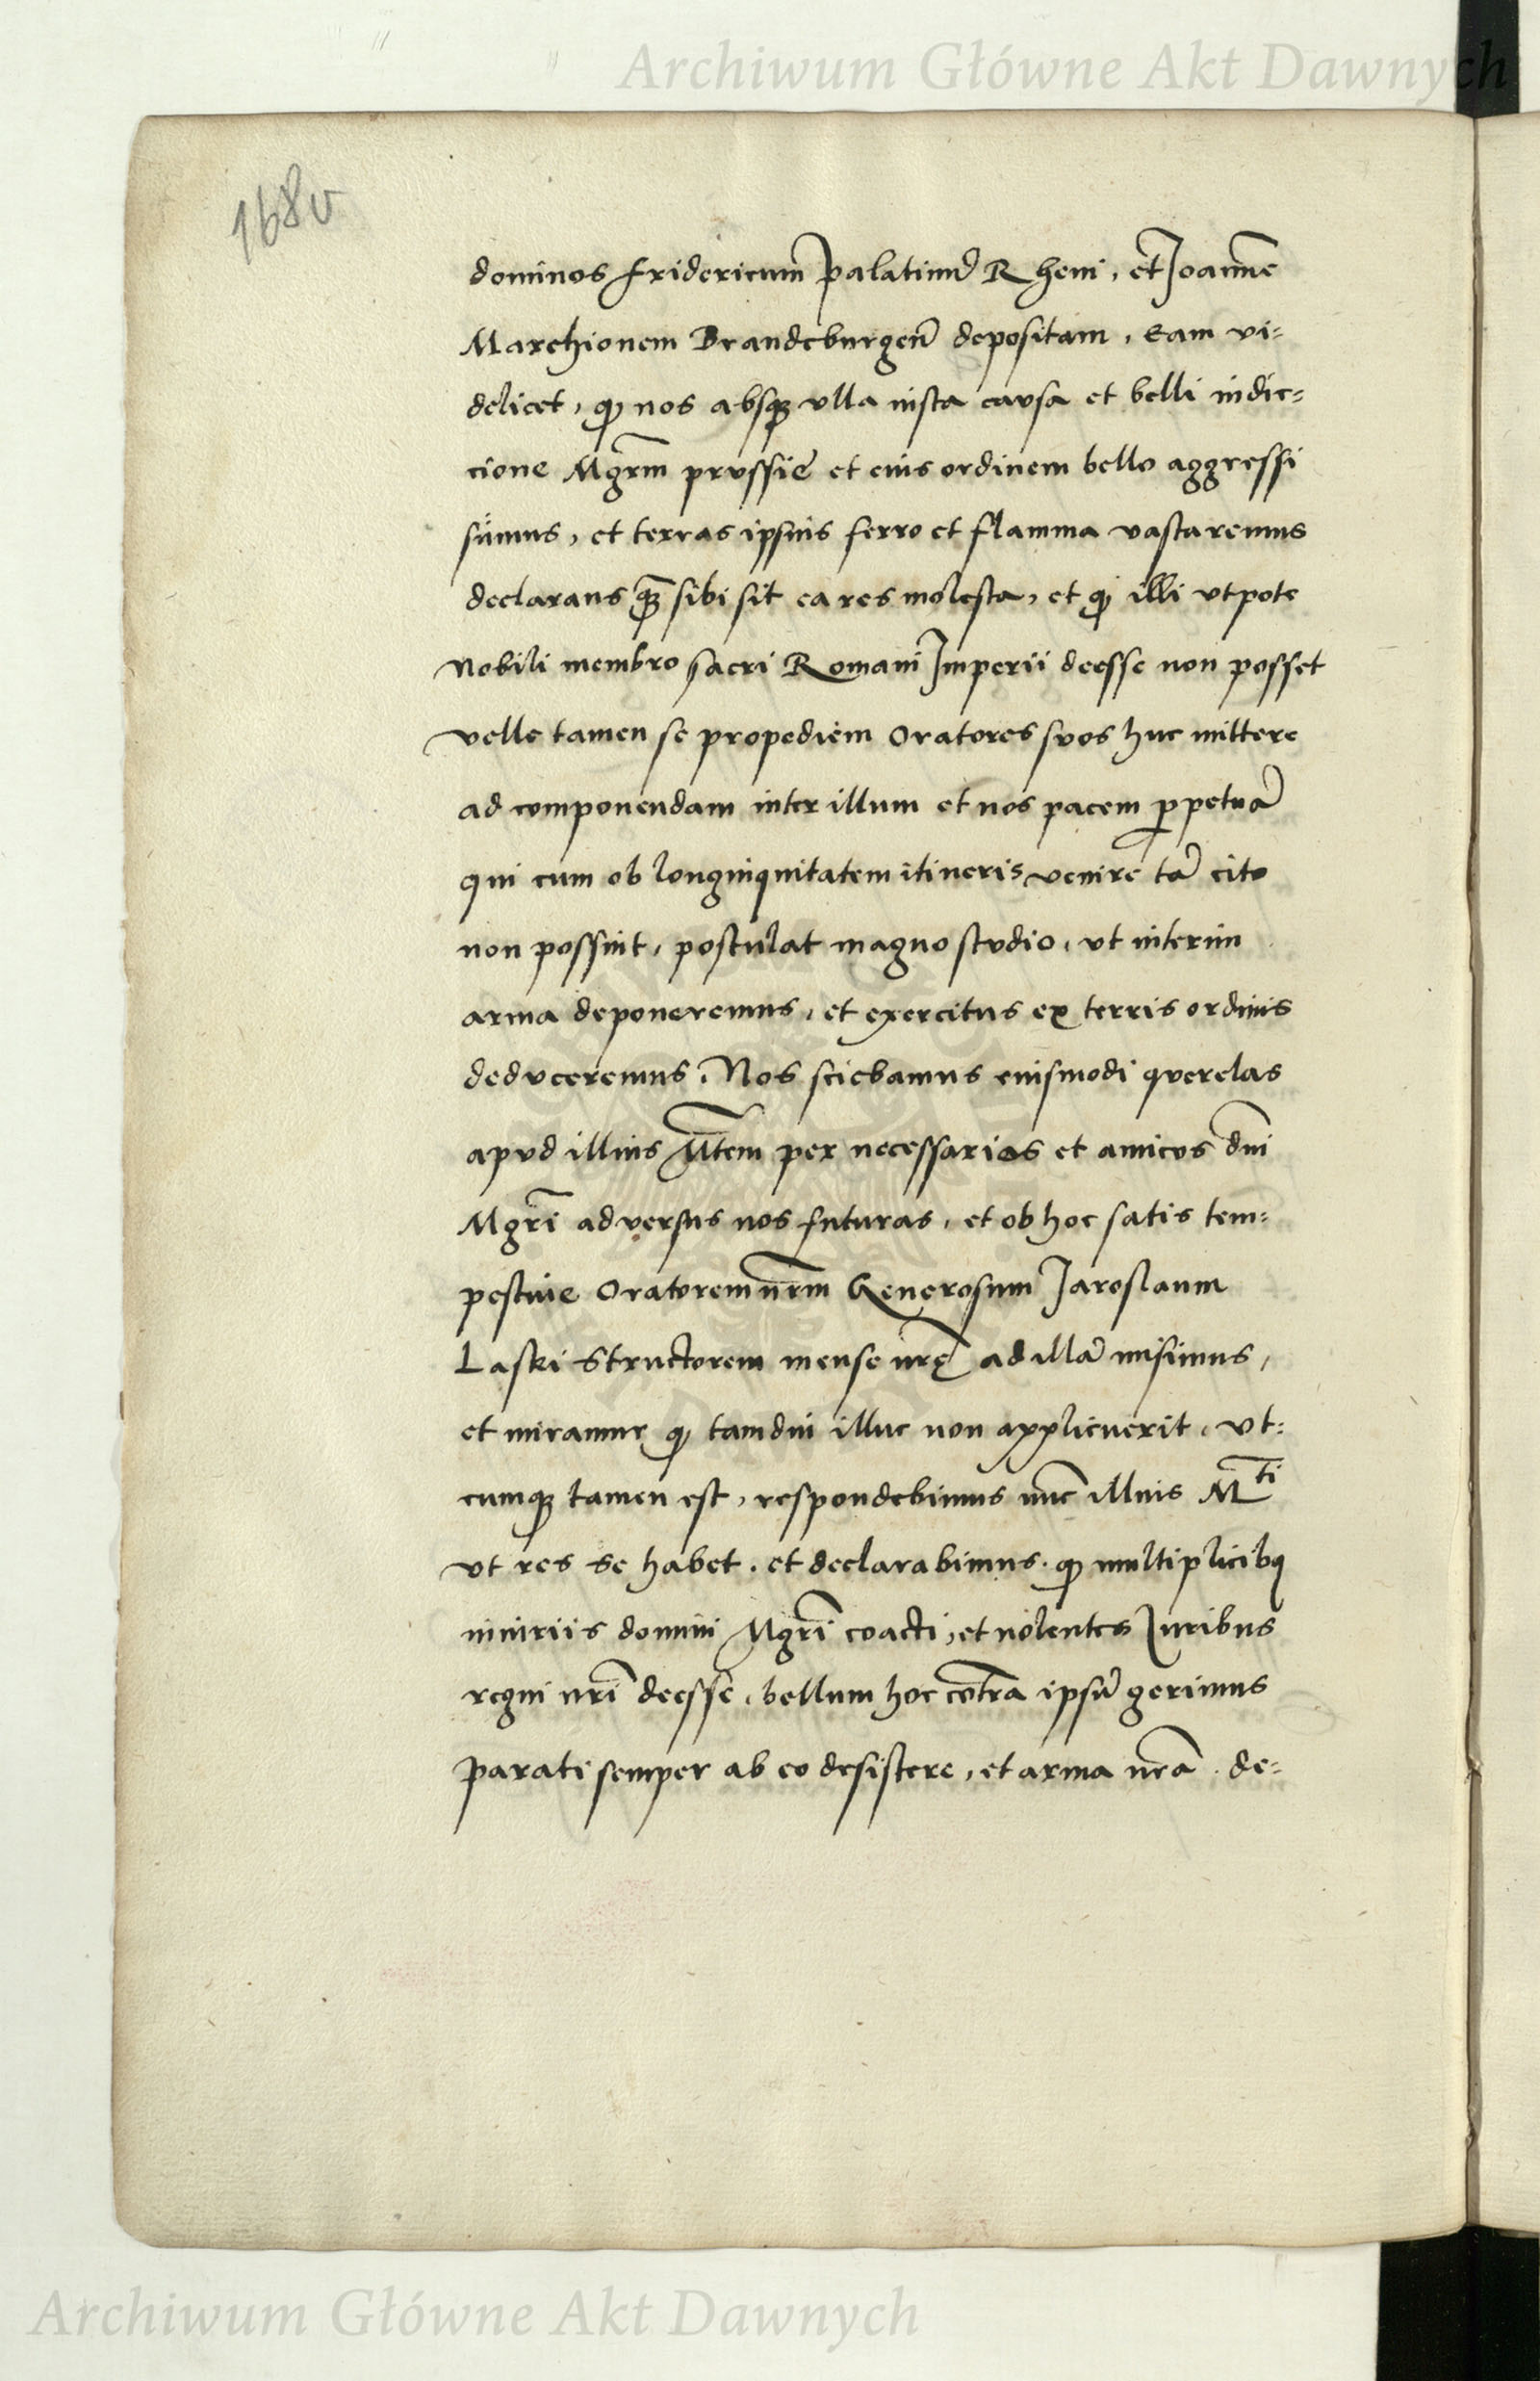 Archiwum Główne Akt Dawnych
168v
dominos Fridericum Palatinū Rheni, et Joannē
Marchionem Brandeburgen̄ depositam, Eam vi=
delicet, qꝫ nos absqꝫ vlla iusta causa et belli indic=
cione Mgr̄m prussie et eius ordinem bello aggressi
sumus, et terras ipsius ferro et flamma vastaremus
declarans qꝫ̄ sibi sit ea res molesta, et qꝫ illi vtpote
Nobili membro sacri Romani Imperii deesse non posset
velle tamen se propediem Oratores suos huc mittere
ad componendam inter illum et nos pacem ꝑpetuā
qui cum ob longinquitatem itineris venire tā cito
non possint, postulat magno studio, vt interim
arma deponeremus, et exercitus ex terris ordinis
deduceremus. Nos sciebamus eiusmodi querelas
apud illius M̄tem per necessarios et amicos dn̄i
Mgr̄i adversus nos futuras, et ob hoc satis tem=
pestiue Oratorem nr̄m Generosum Jaroslaum
Laski Structorem mense nr̄ę ad illā misimus,
et miramur qꝫ tamdiu illuc non applicuerit, vt=
cumqꝫ tamen est, respondebimus nūc illius M^ti
vt res se habet, et declarabimus, qꝫ multiplicibꝫ
iniuriis domini Mgr̄i coacti, et nolentes Juribus
regni nr̄i deesse, bellum hoc cōtra ipsū gerimus
parati semper ab eo desistere, et arma nr̄a de=
Archiwum Główne Akt Dawnych